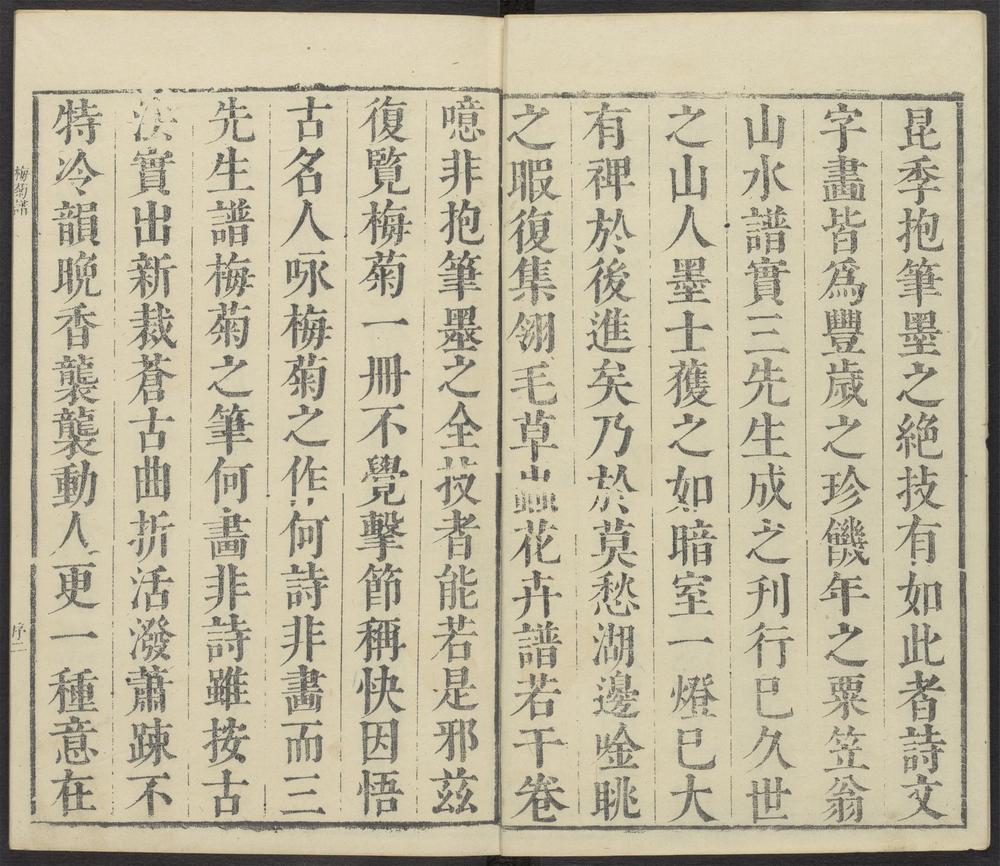 昆季抱筆墨之絶技有如此者詩文
字畫皆爲豐歲之珍饑年之粟笠翁
山水譜實三先生成之刋行已久世
之山人墨士獲之如暗室一燈已大
有裨於後進矣乃於莫愁湖邊唫眺
之暇復集翎毛草蟲花卉譜若干卷
噫非抱筆墨之全技者能若是邪茲
復覽梅菊一冊不覺擊節稱快因悟
古名人咏梅菊之作何詩非畵而三
先生譜梅菊之筆何畵非詩雖按古
法實出新裁蒼古曲折活潑蕭踈不
特冷韻晚香襲襲動人更一種意在
梅菊譜
序二